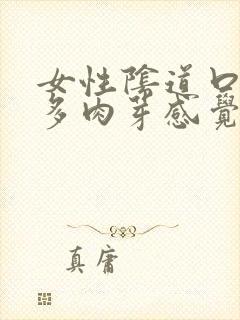 女性陰道口
多肉芽感覺
真庸